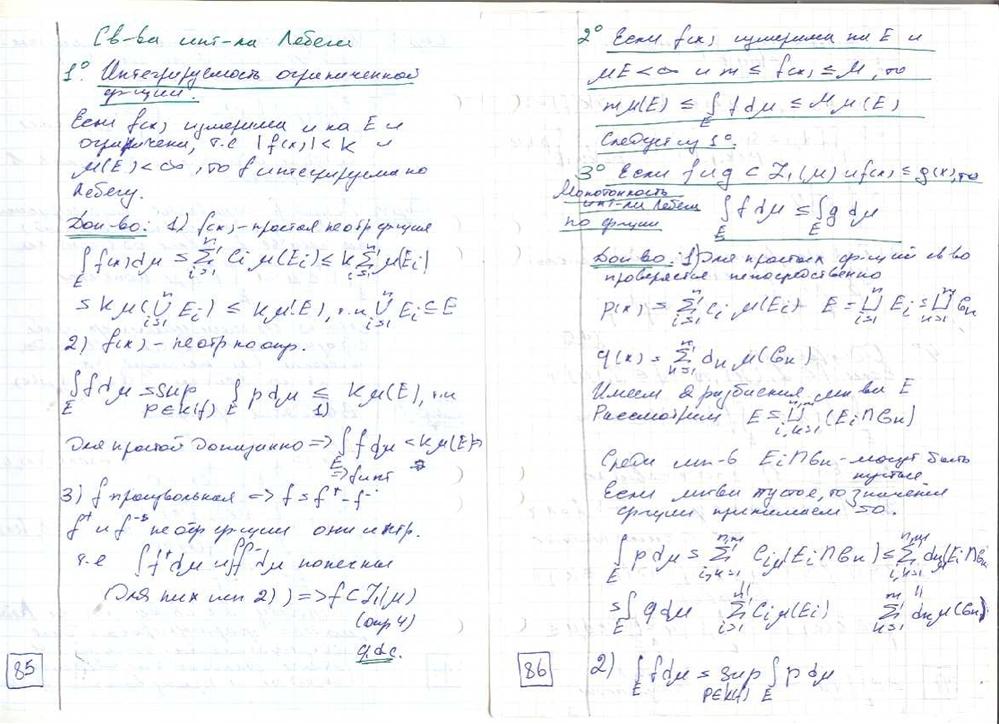 Св-ва инт-ла Лебега
1° Интегрируемость ограниченной
ф-ции.
Если f(x) измерима и на E и
ограничена, т.е |f(x)| < K и
μ(E) < ∞, то f интегрируема по
Лебегу.
Док-во: 1) f(x) - простая неотр ф-ция
∫_E f(x)dμ = Σ_{i=1}^n C_i μ(E_i) ≤ K Σ_{i=1}^n μ(E_i)
= K μ(⋃_{i=1}^n E_i) ≤ K μ(E), т.к ⋃_{i=1}^n E_i ⊆ E
2) f(x) - неотр по опр.
∫_E f dμ = sup_{p∈K(f)} ∫_E p dμ ≤_{1)} K μ(E), т.к
для простой доказанно => ∫_E f dμ < K μ(E) =>
=> f инт
3) f произвольная => f = f⁺ - f⁻
f⁺ и f⁻ - неотр ф-ции они интр.
т.е ∫f⁺dμ и ∫f⁻dμ конечны
(для них из 2)) => f ⊂ L₁(μ)
(опр 4)
q.d.e.
85
2° Если f(x) измерима на E и
μE < ∞ и m ≤ f(x) ≤ M, то
m μ(E) ≤ ∫_E f dμ ≤ M μ(E)
Следует из 1°.
3° Если f и g ⊂ L₁(μ) и f(x) ≤ g(x), то
Монотонность
инт-ла Лебега
по ф-ции
∫_E f dμ ≤ ∫_E g dμ
Док-во: 1) Для простых ф-ций св-во
проверяется непосредственно
p(x) = Σ_{i=1}^n C_i μ(E_i) E = ⨆_{i=1}^n E_i = ⨆_{k=1}^m G_k
q(x) = Σ_{k=1}^m d_k μ(G_k)
Имеем 2 разбиения мн-ва E
Рассмотрим E = ⨆_{i,k=1}^{n,m} (E_i ∩ G_k)
Среди мн-в E_i ∩ G_k - могут быть
пустые
Если мн-во пустое, то значения
ф-ции принимаем = 0.
∫_E p dμ = Σ_{i,k=1}^{n,m} C_i μ(E_i ∩ G_k) ≤ Σ_{i,k=1}^{n,m} d_k μ(E_i ∩ G_k)
= ∫_E q dμ Σ_{i=1}^n C_i μ(E_i) Σ_{k=1}^m d_k μ(G_k)
2) ∫_E f dμ = sup_{p∈K(f)} ∫_E p dμ
86